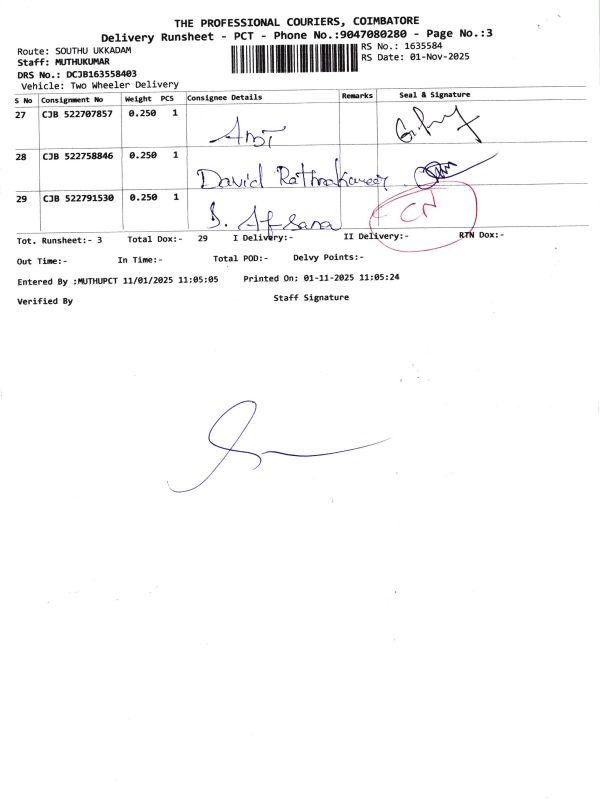 THE PROFESSIONAL COURIERS, COIMBATORE
Delivery Runsheet - PCT - Phone No.:9047080280 - Page No.:3
Route: SOUTHU UKKADAM
RS No.: 1635584
Staff: MUTHUKUMAR
RS Date: 01-Nov-2025
DRS No.: DCJB163558403
Vehicle: Two Wheeler Delivery
S No Consignment No Weight PCS Consignee Details Remarks Seal & Signature
27 CJB 522707857 0.250 1
28 CJB 522758846 0.250 1 David
29 CJB 522791530 0.250 1 S. Afsana CN
Tot. Runsheet:- 3 Total Dox:- 29 I Delivery:- II Delivery:- RTN Dox:-
Out Time:- In Time:- Total POD:- Delvy Points:-
Entered By :MUTHUPCT 11/01/2025 11:05:05 Printed On: 01-11-2025 11:05:24
Verified By Staff Signature